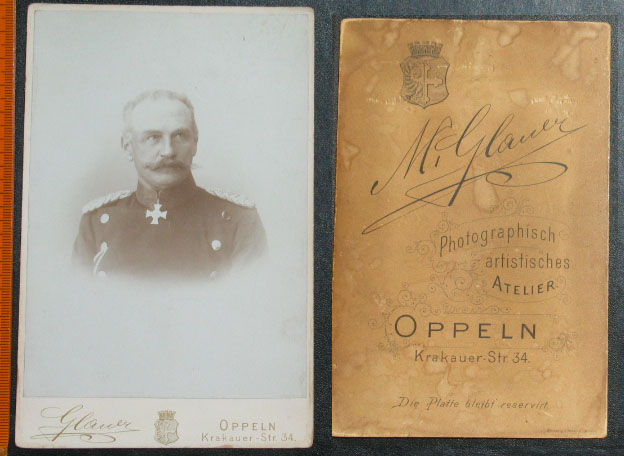 Glauer
OPPELN
Krakauer-Str. 34.
M. Glauer
Photographisch
artistisches
ATELIER.
OPPELN
Krakauer-Str. 34.
Die Platte bleibt reservirt.